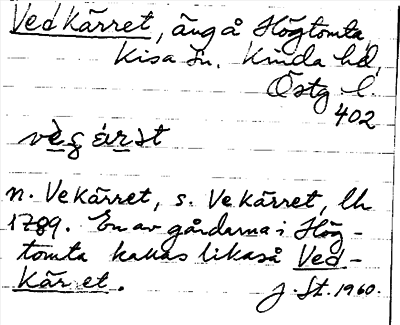 Vedkärret, äng å Högtomta,
Kisa sn. Kinda hd,
Östg l.
402
n. Vekärret, s. Vekärret, lh
1789. En av gårdarna i Hög-
tomta kallas likaså Ved-
kärret.
J. St. 1960.